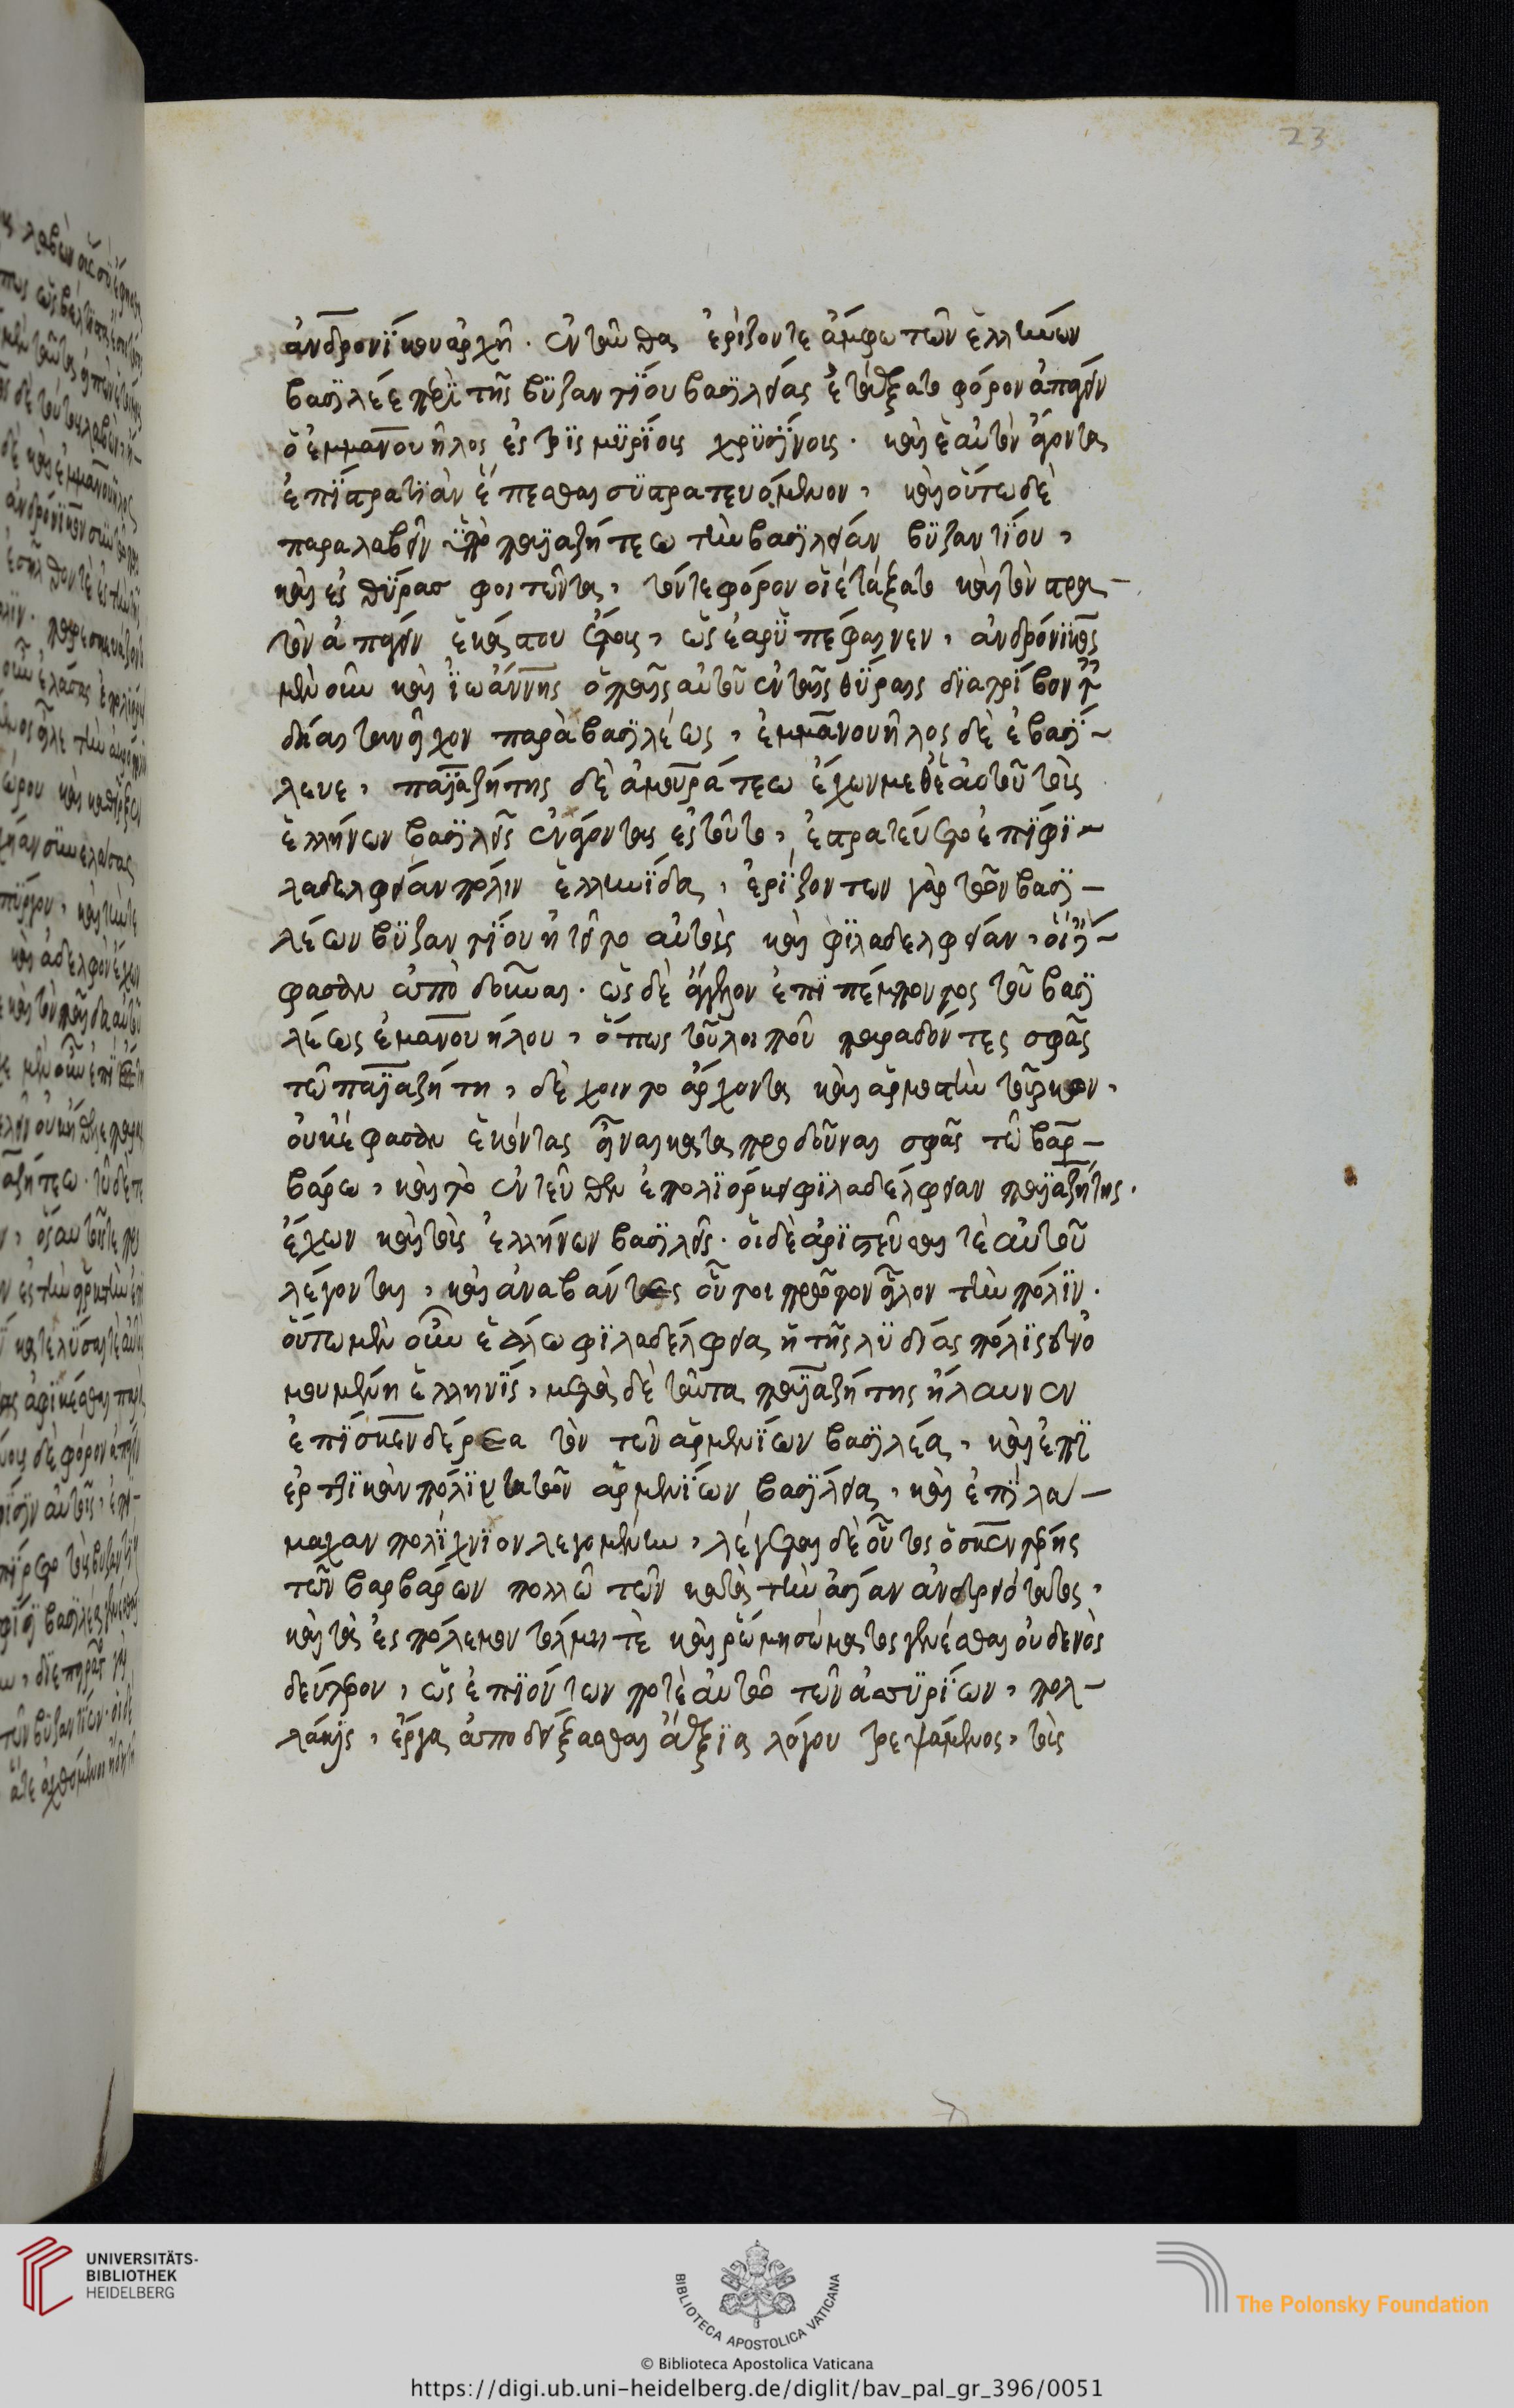 23
ἀνδρονίκου ἀρχῆ. ἐνταῦθα ἐρίζοντε ἄμφω τῶν ἑλλήνων
βασιλέε περὶ τῆς βυζαντίου βασιλείας ἐτάξατο φόρον ἀπάγειν
ὁ ἐμμανουῆλος ἐς τρὶς μυρίοις χρυσίνοις. καὶ ἑαυτὸν ἄγοντα
ἐπὶ στρατιὰν ἕπεσθαι συστρατευόμενον, καὶ οὕτω δὲ
παραλαβεῖν ὑπὸ παϊαζήτεω τὴν βασιλείαν βυζαντίου,
καὶ ἐς θύρας φοιτῶντα, τόν τε φόρον οἷ ἐτάξατο καὶ τὸν στρα-
τὸν ἀπάγειν ἑκάστου ἔτους, ὡς ἔαρ ὑπέφαινεν, ἀνδρόνικος
μὲν οὖν καὶ ἰωάννης ὁ παῖς αὐτοῦ ἐν ταῖς θύραις διατρίβοντε
δίαιταν εἶχον παρὰ βασιλέως, ἐμμανουῆλος δὲ ἐβασί-
λευε, παϊαζήτης δὲ ἀμουράτεω ἔχων μεθ ἑαυτοῦ τοὺς
ἑλλήνων βασιλεῖς ἐνάγοντας ἐς τοῦτο, ἐστρατεύετο ἐπὶ φι-
λαδελφείαν πόλιν ἑλληνίδα, ἐριζόντων γὰρ τῶν βασι-
λέων βυζαντίου ᾐτεῖτο αὐτοὺς καὶ φιλαδελφείαν, οἱ δ᾽ ἔ-
φασαν ἀποδοῦναι. ὡς δὲ ἄγγελον ἐπιπέμποντος τοῦ βασι
λέως ἐμανουήλου, ὅπως τοῦ λοιποῦ παραδόντες σφᾶς
τῷ παϊαζήτη, δέχοιντο ἄρχοντα καὶ ἁρμοστὴν τοῦρκον,
οὐκ ἔφασαν ἑκόντας εἶναι καταπροδοῦναι σφᾶς τῷ βαρ-
βάρω, καὶ τὸ ἐντεῦθεν ἐπολιόρκει φιλαδέλφειαν παϊαζήτης.
ἔχων καὶ τοὺς ἑλλήνων βασιλεῖς. οἳ δὲ ἀριστεῦσαί τε αὐτοῦ
λέγονται, καὶ ἀναβάντες οὗτοι πρῶτον εἷλον τὴν πόλιν.
οὕτω μὲν οὖν ἑάλω φιλαδέλφεια ἡ τῆς λυδίας πόλις εὐνο
μουμένη ἑλληνίς, μετὰ δὲ ταῦτα παϊαζήτης ἤλαυνεν
ἐπὶ σκενδέρεα τὸν τῶν ἀρμενίων βασιλέα, καὶ ἐπὶ
ἐρτζικὰν πόλιν τὰ τῶν ἀρμενίων βασίλεια, καὶ ἐπὶ λα-
μαχαν πολίχνιον λεγομένην, λέγεται δὲ οὗτος ὁ σκενδέρης
τῶν βαρβάρων πολλῷ τῶν κατὰ τὴν ἀσίαν ἀνδρειότατος,
καὶ τὰ ἐς πόλεμον τόλμη τὲ καὶ ῥώμη σώματος γενέσθαι οὐδενὸς
δεύτερον, ὡς ἐπιόντων ποτὲ αὐτῷ τῶν ἀσσυρίων, πολ-
λάκις, ἔργα ἀποδείξασθαι ἄξια λόγου τρεψάμενος, τοὺς
UNIVERSITÄTS-
BIBLIOTHEK
HEIDELBERG
BIBLIOTECA APOSTOLICA VATICANA
The Polonsky Foundation
© Biblioteca Apostolica Vaticana
https://digi.ub.uni-heidelberg.de/diglit/bav_pal_gr_396/0051